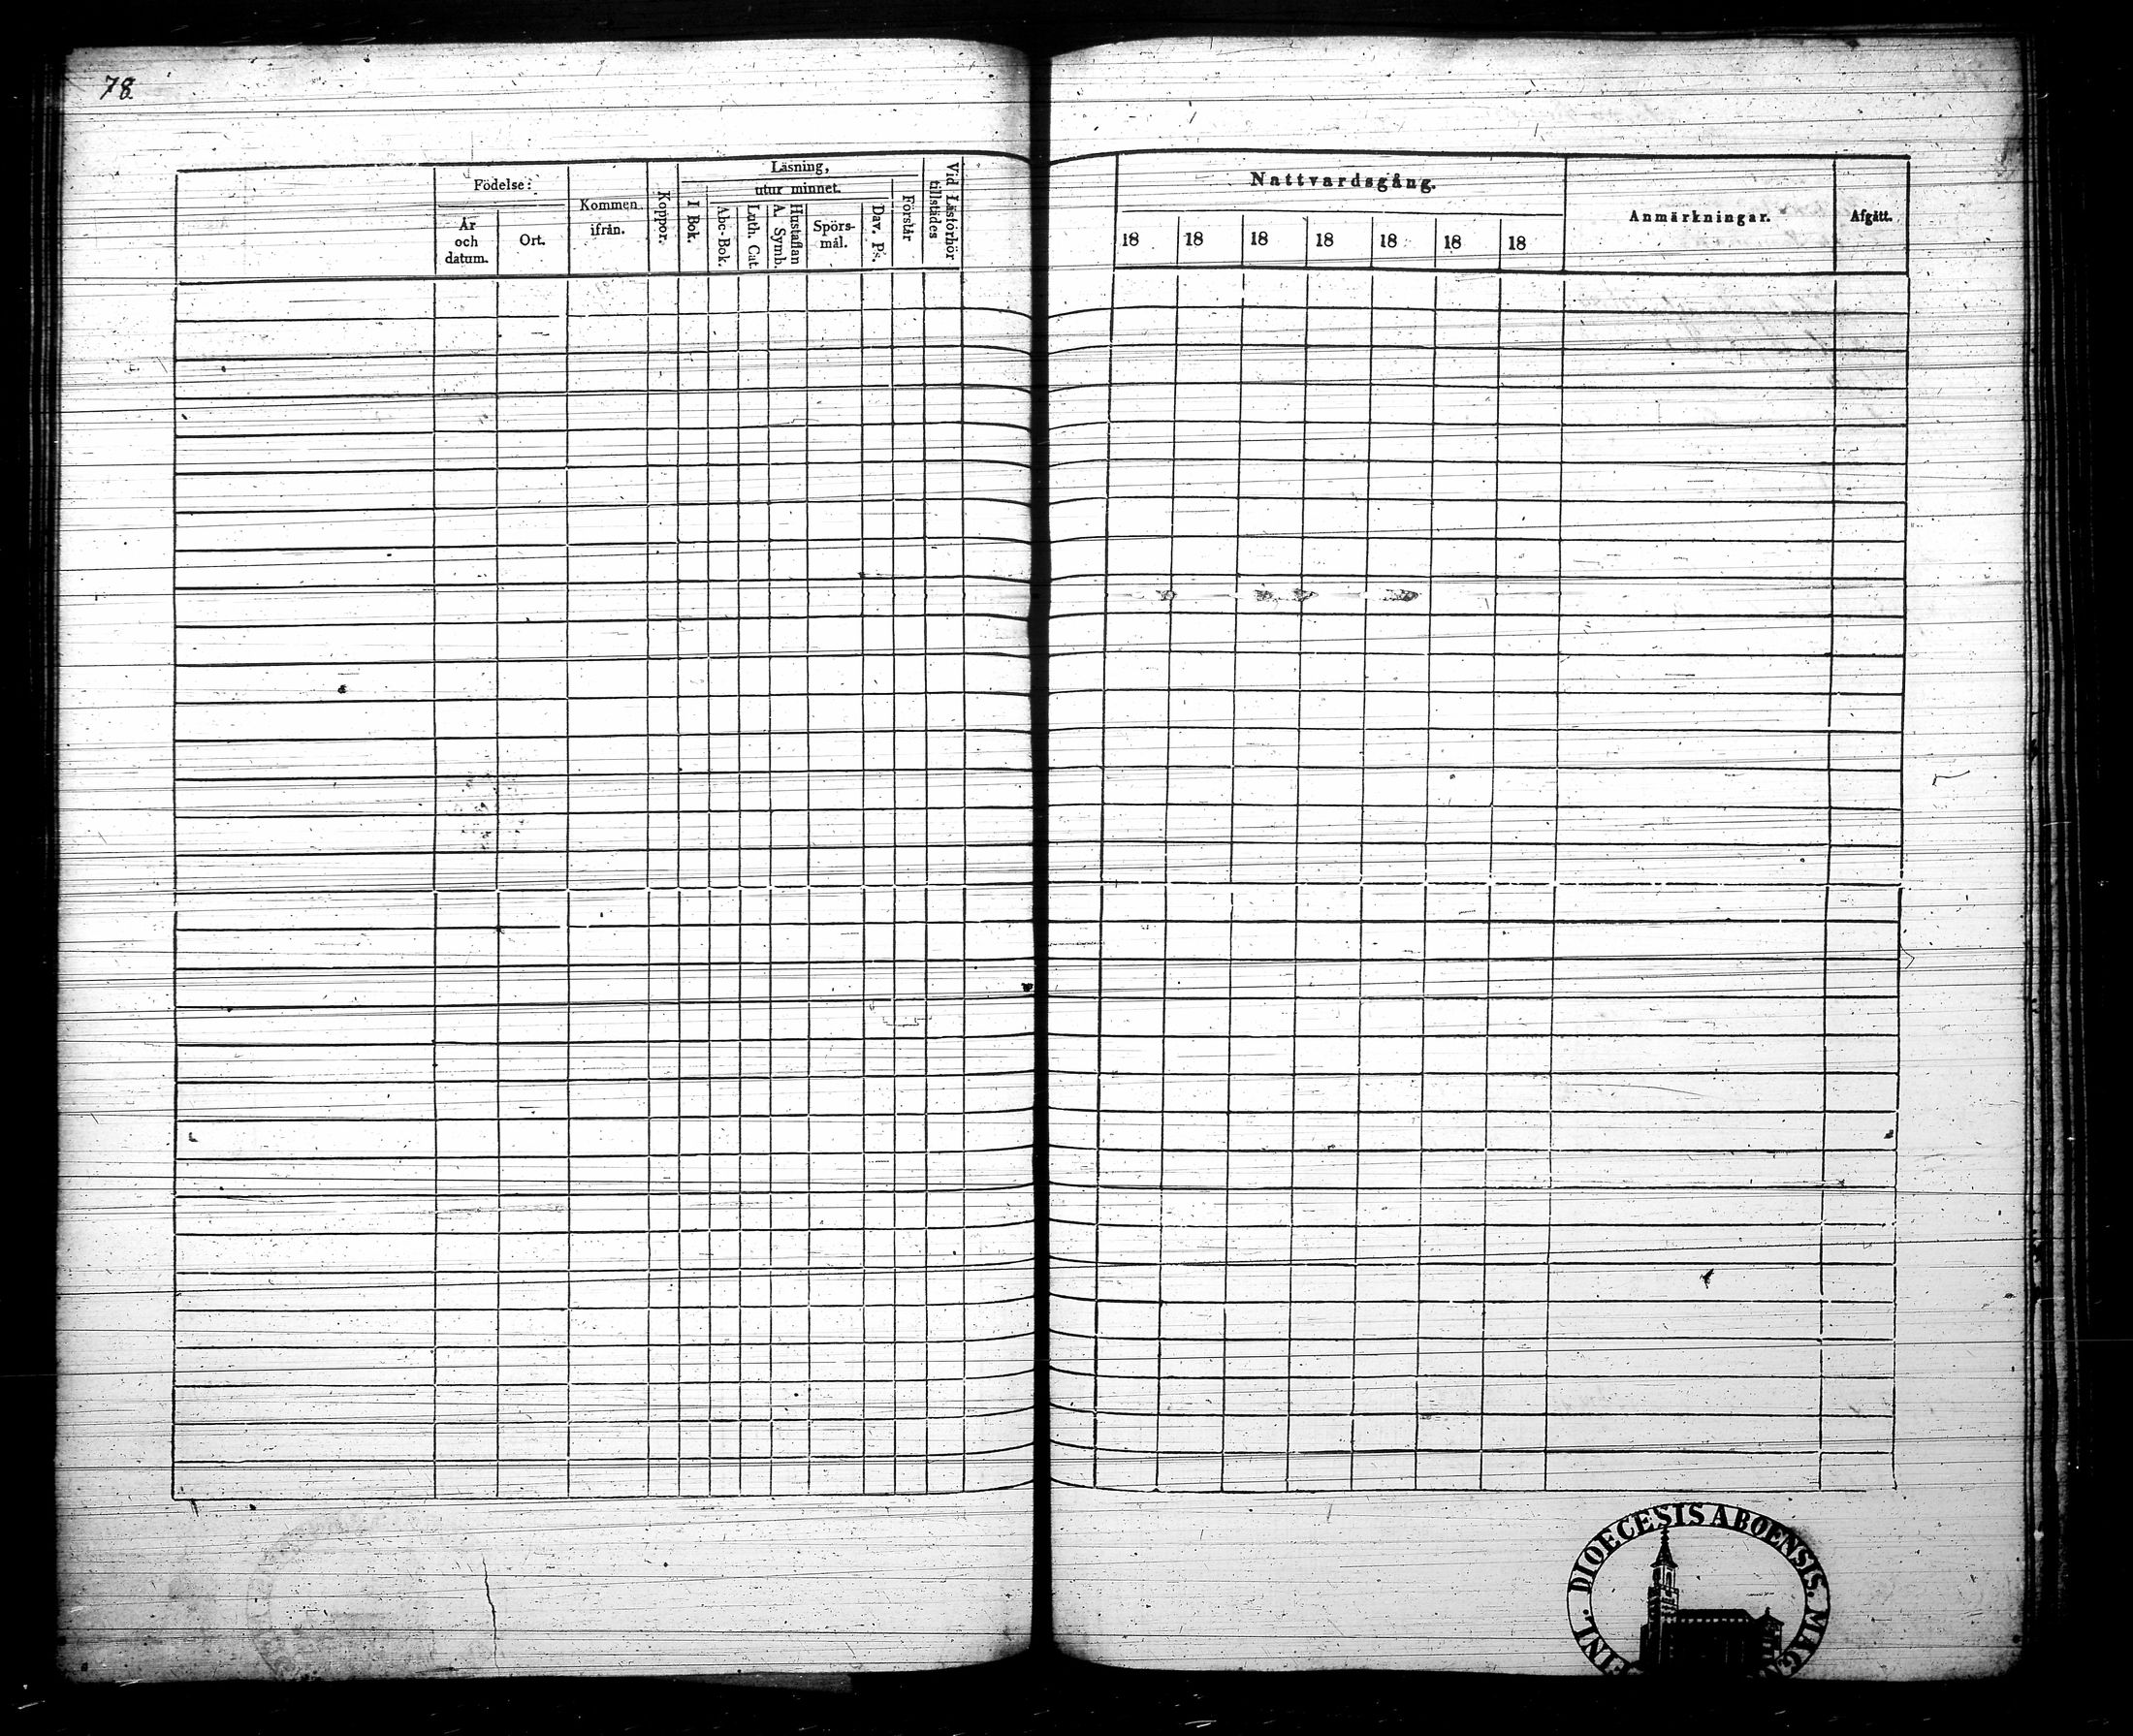 78
Födelse:
År
och
datum.
Ort.
Kommen
ifrån.
Koppor.
Läsning,
utur minnet.
I Bok.
Abc-Bok.
Luth. Cat.
Hustaflan
A. Symb.
Spörs-
mål.
Dav. Ps.
Förstår
Vid Läsförhör
tillstädes
Nattvardsgång.
18 18 18 18 18 18 18
Anmärkningar.
Afgått.
FINL. DIOECESIS ABOENSIS. MAG.